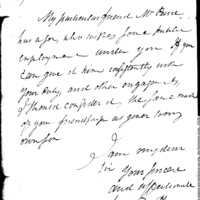 My particular friend Mr
has a son, who wishes some public
employment under you If you
can give it him consistently with
your duty, and other engagements,
I should consider it, the same mark
of your friendship as given to my
own son.
I am my dear
Sir your sincere
and affectionate